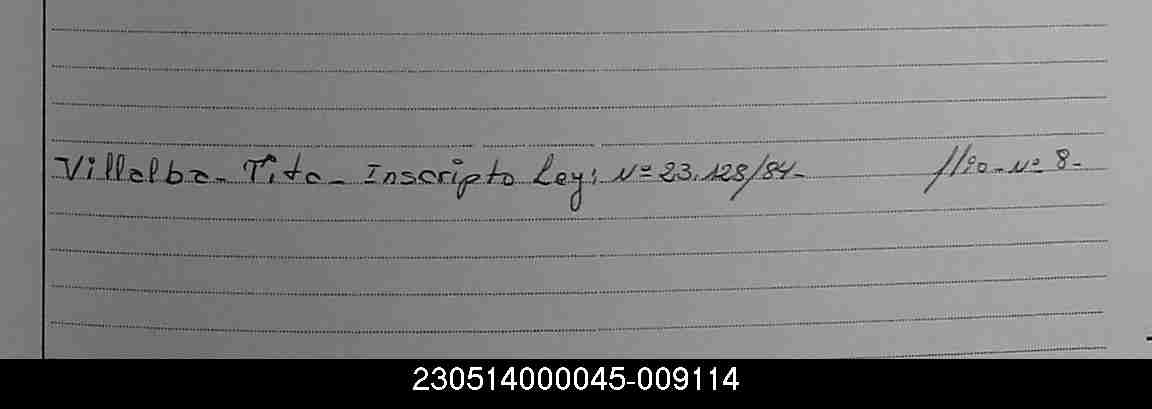 Villalba - Tita - Inscripto Ley: Nº 23.128/84 - flio - Nº 8 -
230514000045-009114